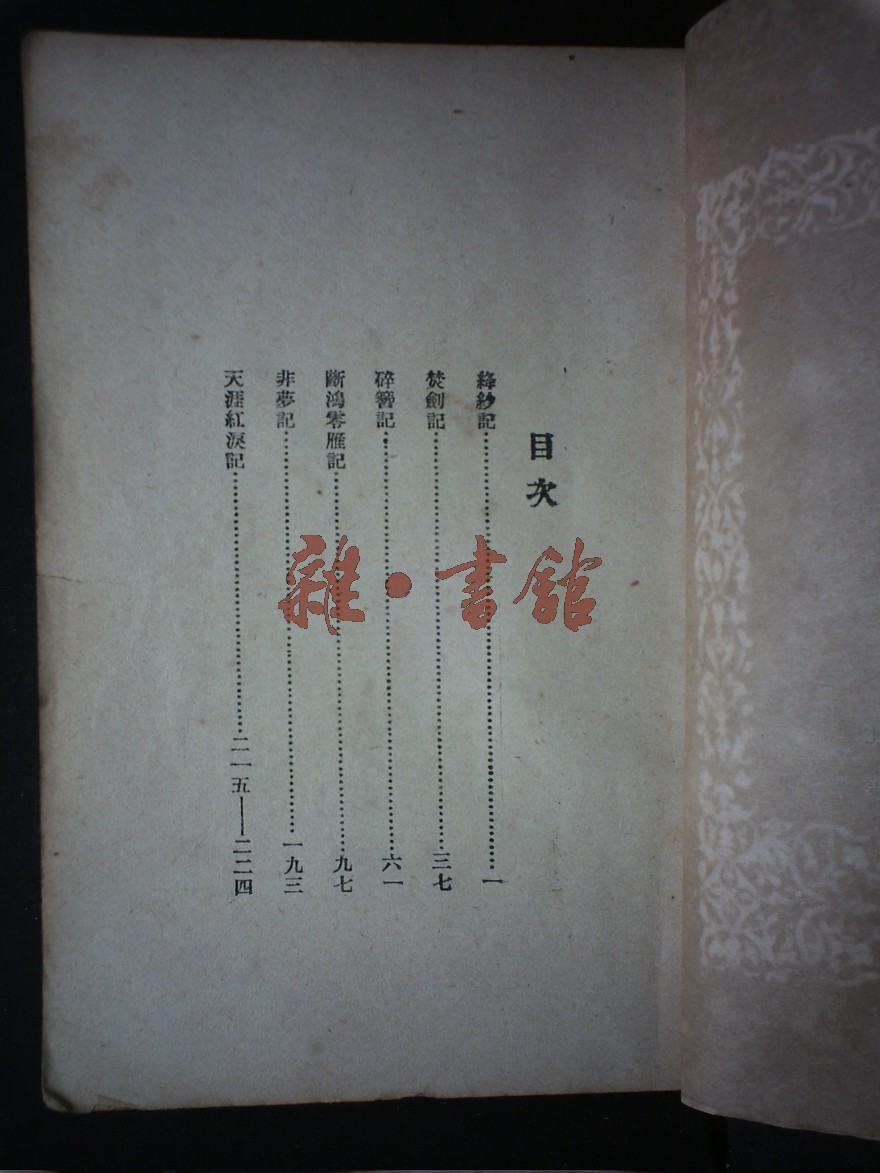 目次
絳紗記……一
焚劍記……三七
碎簪記……六一
斷鴻零雁記……九七
非夢記……一九三
天涯紅淚記……二一五——二二四
雜·書館